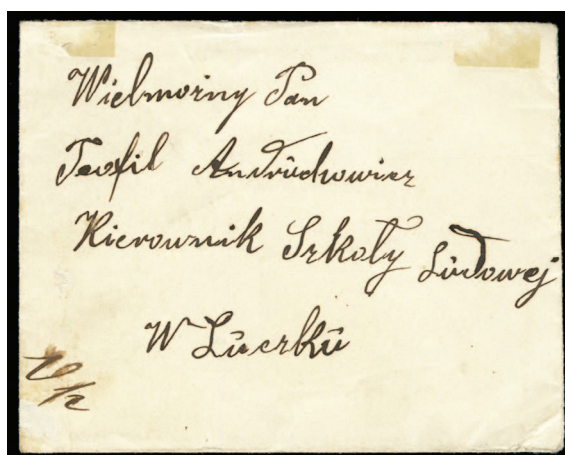 Wielmożny Pan
Teofil Andruchowicz
Kierownik Szkoły Ludowej
W Łuczkū